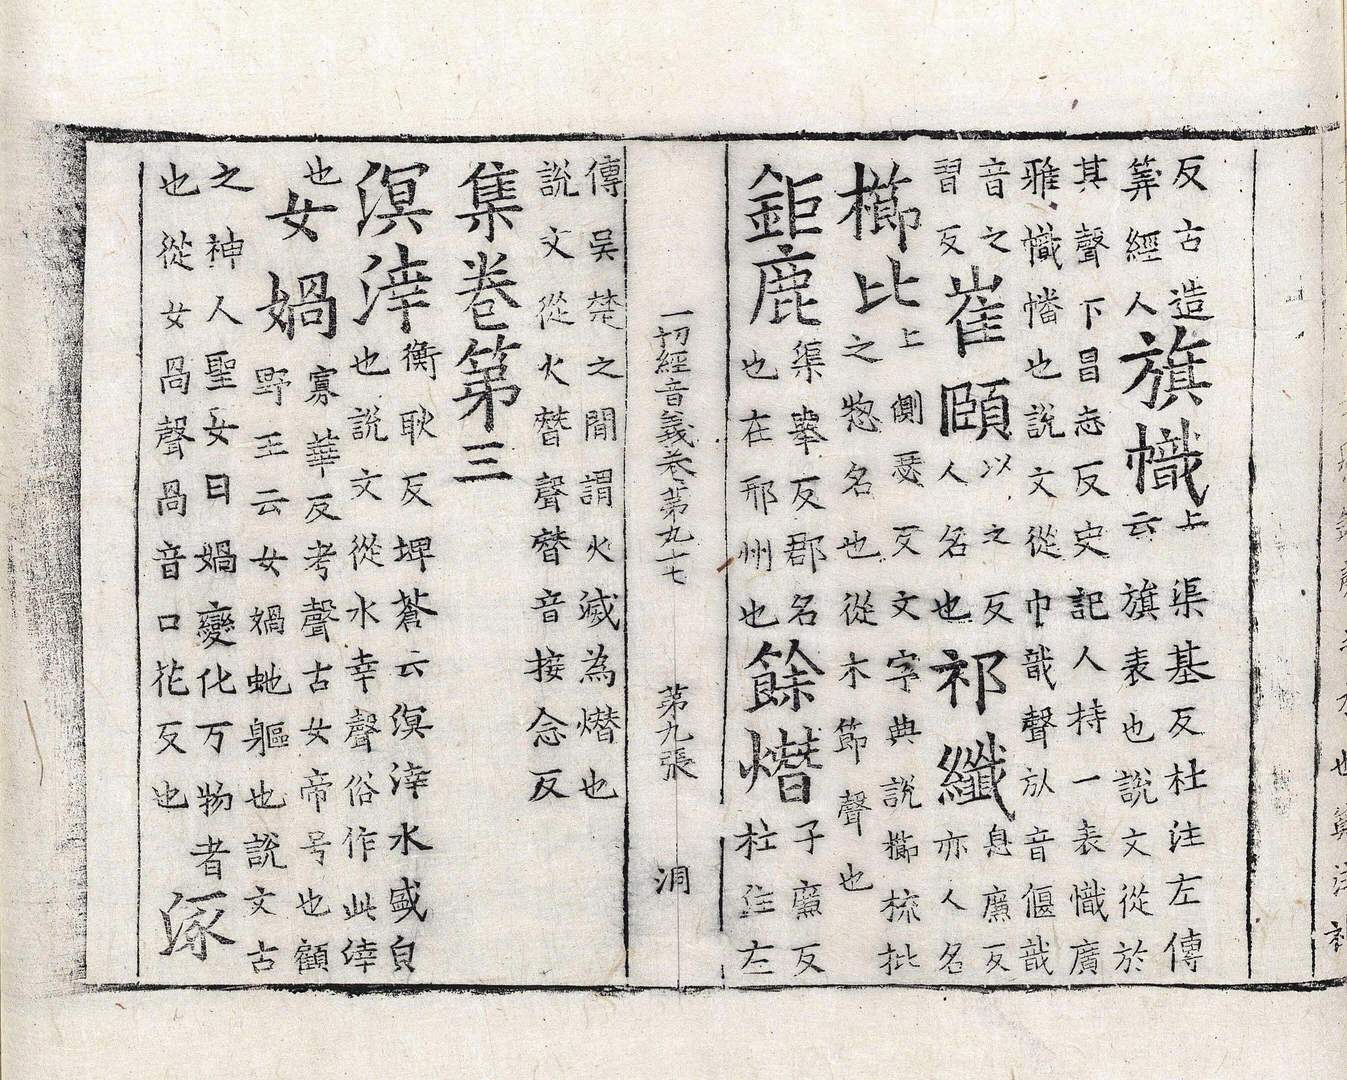 反古造
筭經人
旗幟
上渠基反杜注左傳
云旗表也說文從於
其聲下昌志反史記人持一表幟廣
雅幟幡也說文從巾戠聲㫃音偃戠
音之
習反
崔頤
以之反
人名也
祁纖
息廉反
亦人名
櫛比
上側瑟反文字典說櫛梳批
之惣名也從木節聲也
鉅鹿
渠舉反郡名
也在邢州也
餘熸
子廉反
杜注左
一切經音義卷第九七 第九張 洞
傳吳楚之間謂火滅為熸也
說文從火朁聲朁音接念反
集卷第三
溟涬
衡耿反埤蒼云溟涬水盛皃
也說文從水幸聲俗作此涬
也
女媧
寡華反考聲古女帝号也顧
野王云女媧虵軀也說文古
之神人聖女曰媧變化万物者
也從女咼聲咼音口花反也
涿